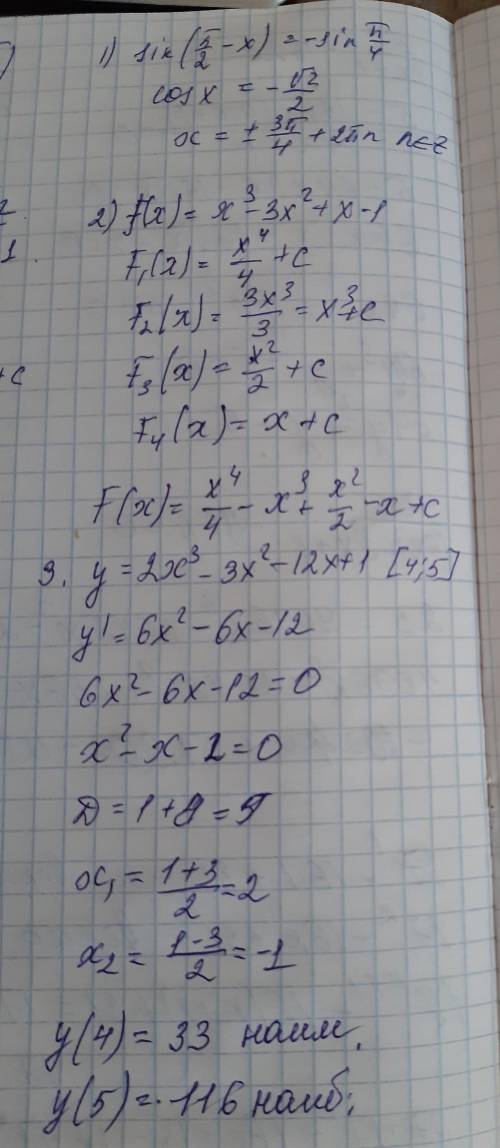 1) sin(π/2 - x) = -sin π/4
cos x = -√2/2
x = ± 3π/4 + 2πn n∈z
2) f(x) = x³ - 3x² + x - 1
1.
F₁(x) = x⁴/4 + c
F₂(x) = 3x³/3 = x³ + c
+c
F₃(x) = x²/2 + c
F₄(x) = x + c
F(x) = x⁴/4 - x³ + x²/2 - x + c
3. y = 2x³ - 3x² - 12x + 1 [4;5]
y' = 6x² - 6x - 12
6x² - 6x - 12 = 0
x² - x - 2 = 0
D = 1 + 8 = 9
x₁ = (1+3)/2 = 2
x₂ = (1-3)/2 = -1
y(4) = 33 наим.
y(5) = 116 наиб.